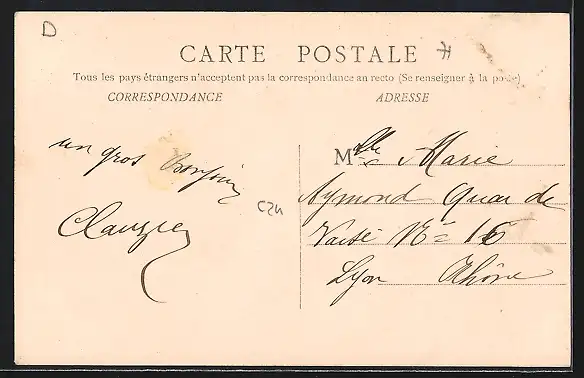 D
CARTE POSTALE
Tous les pays étrangers n'acceptent pas la correspondance au recto (Se renseigner à la poste)
CORRESPONDANCE
ADRESSE
un gros Bonjour
Clauzier
C2u
Mlle Marie
Aymond Quai de
Vaise No 16
Lyon Rhône